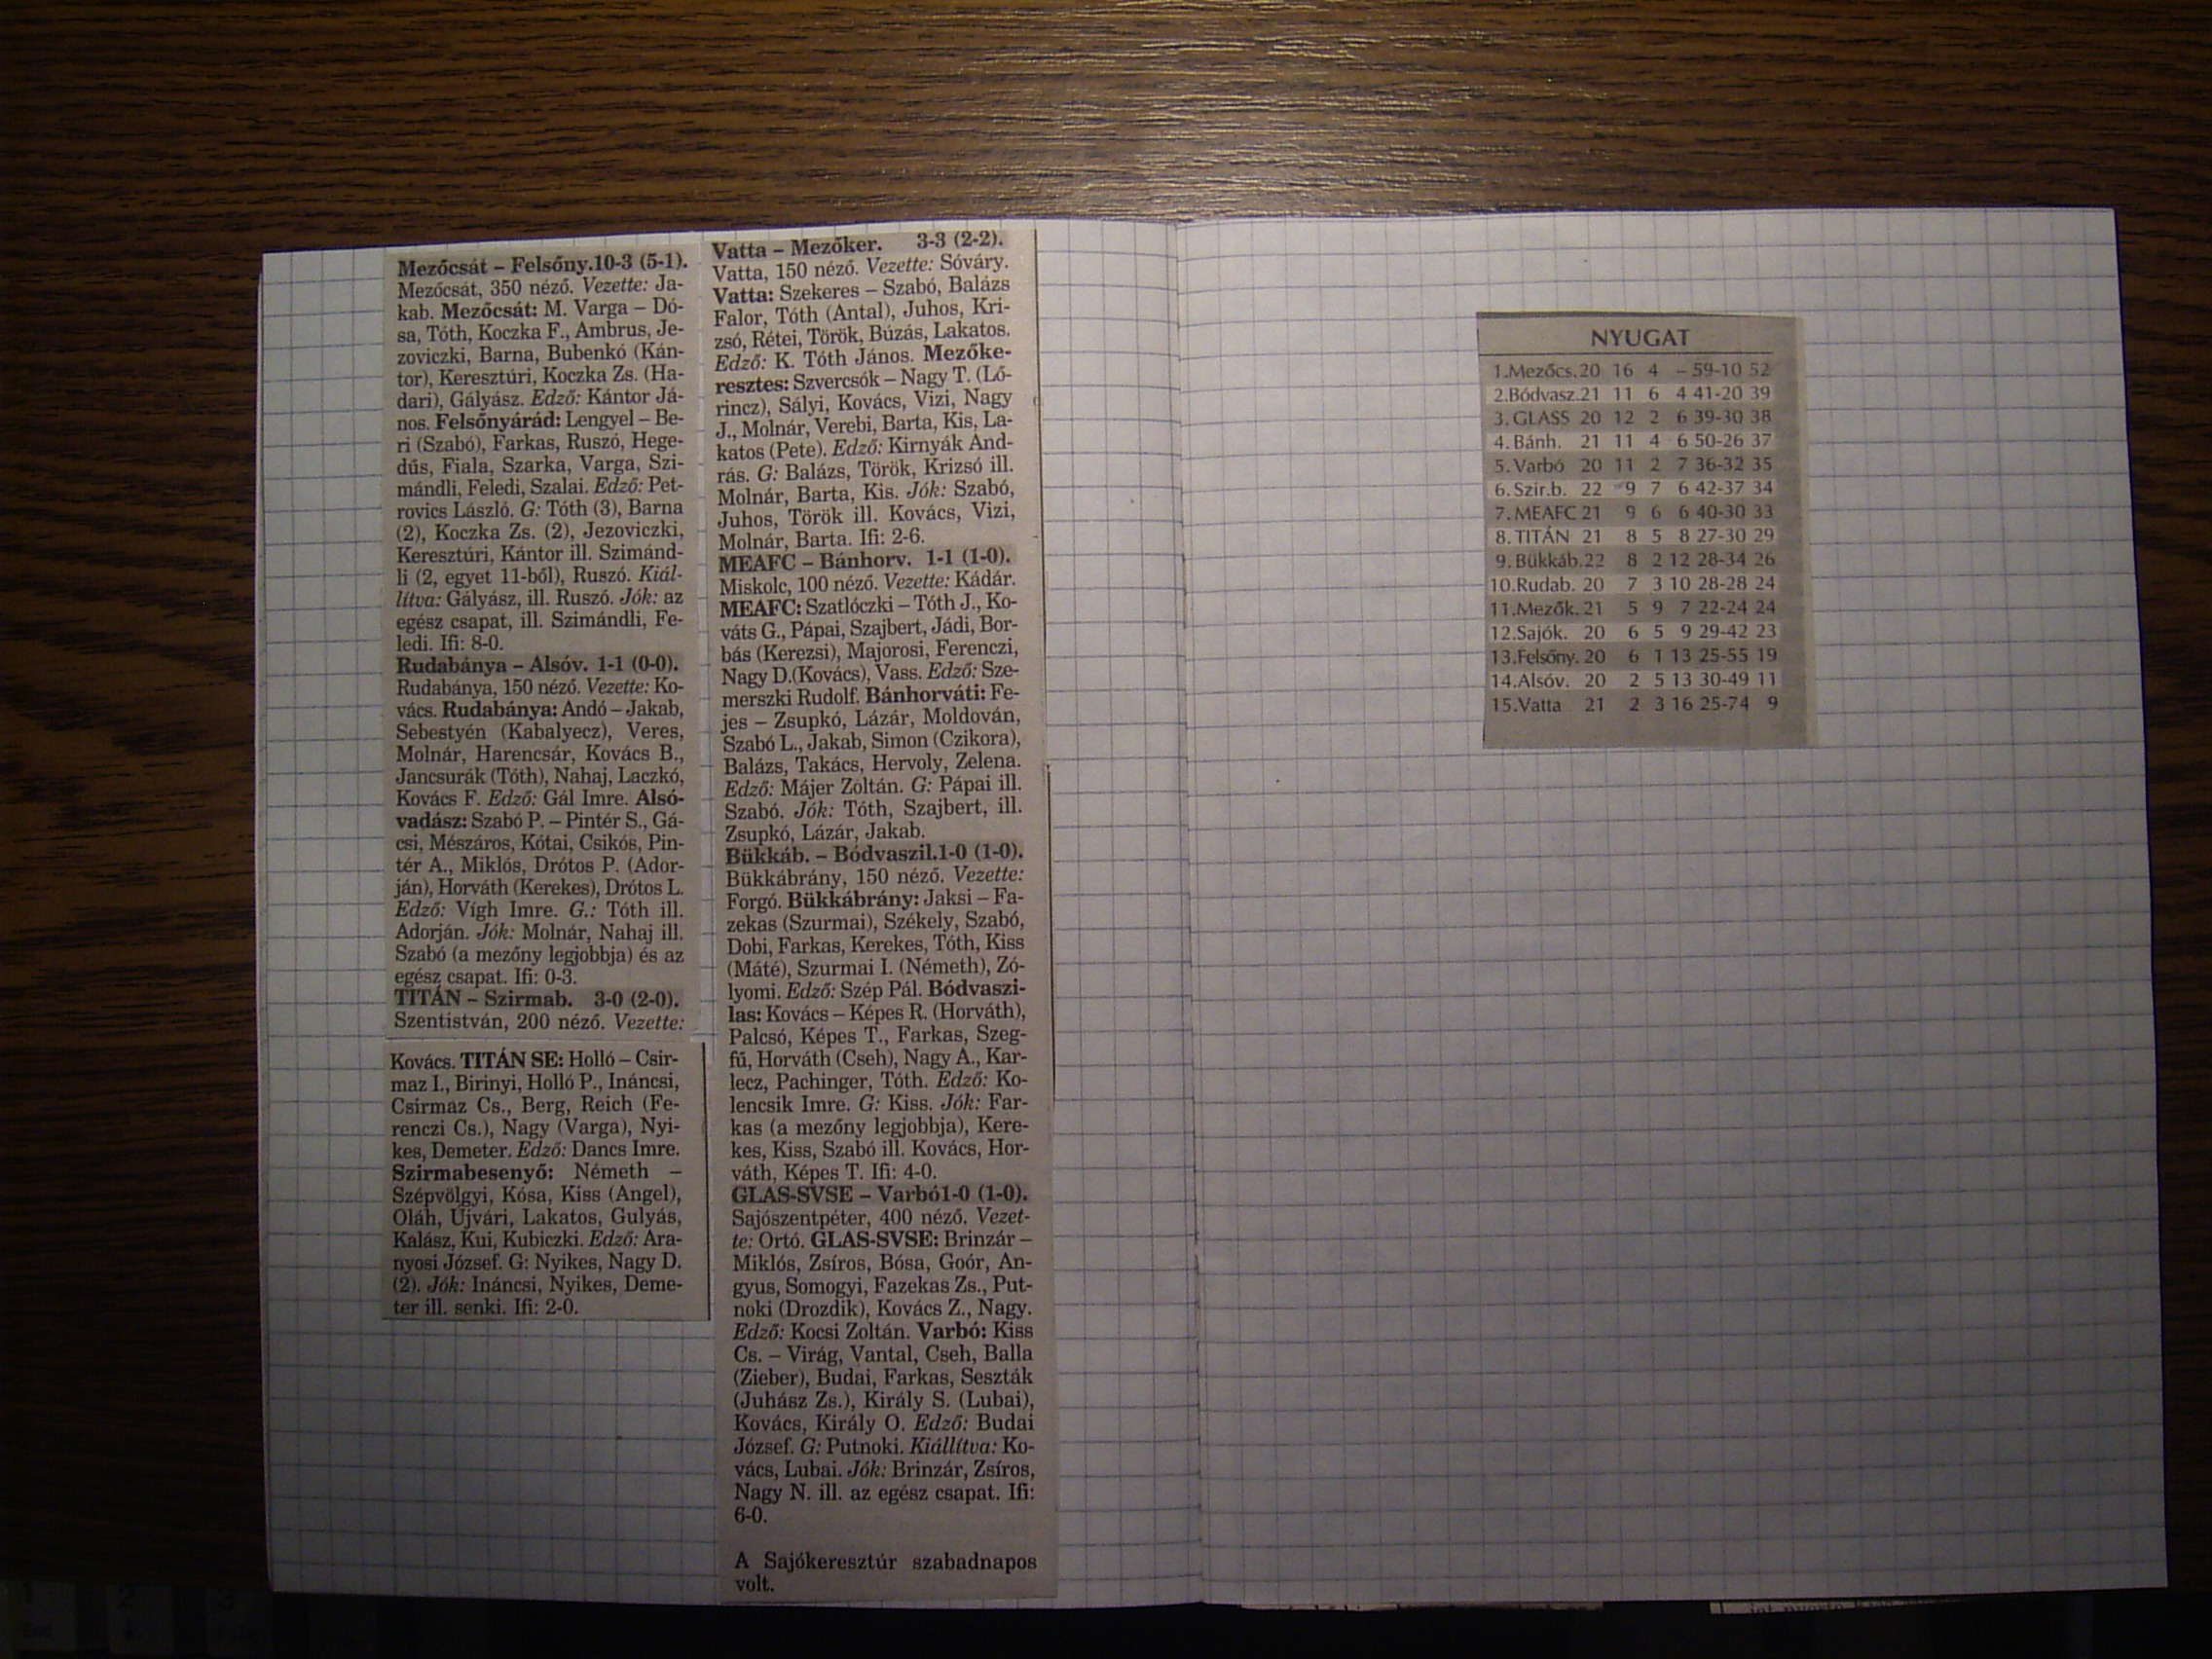 Mezőcsát – Felsőny.10-3 (5-1).
Mezőcsát, 350 néző. Vezette: Ja-
kab. Mezőcsát: M. Varga – Dó-
sa, Tóth, Koczka F., Ambrus, Je-
zoviczki, Barna, Bubenkó (Kán-
tor), Keresztúri, Koczka Zs. (Ha-
dari), Gályász. Edző: Kántor Já-
nos. Felsőnyárád: Lengyel – Be-
ri (Szabó), Farkas, Ruszó, Hege-
dűs, Fiala, Szarka, Varga, Szi-
mándli, Feledi, Szalai. Edző: Pet-
rovics László. G: Tóth (3), Barna
(2), Koczka Zs. (2), Jezoviczki,
Keresztúri, Kántor ill. Szimánd-
li (2, egyet 11-ből), Ruszó. Kiál-
lítva: Gályász, ill. Ruszó. Jók: az
egész csapat, ill. Szimándli, Fe-
ledi. Ifi: 8-0.
Rudabánya – Alsóv. 1-1 (0-0).
Rudabánya, 150 néző. Vezette: Ko-
vács. Rudabánya: Andó – Jakab,
Sebestyén (Kabalyecz), Veres,
Molnár, Harencsár, Kovács B.,
Jancsurák (Tóth), Nahaj, Laczkó,
Kovács F. Edző: Gál Imre. Alsó-
vadász: Szabó P. – Pintér S., Gá-
csi, Mészáros, Kótai, Csikós, Pin-
tér A., Miklós, Drótos P. (Ador-
ján), Horváth (Kerekes), Drótos L.
Edző: Vígh Imre. G.: Tóth ill.
Adorján. Jók: Molnár, Nahaj ill.
Szabó (a mezőny legjobbja) és az
egész csapat. Ifi: 0-3.
TITÁN – Szirmab. 3-0 (2-0).
Szentistván, 200 néző. Vezette:
Kovács. TITÁN SE: Holló – Csir-
maz I., Birinyi, Holló P., Ináncsi,
Csirmaz Cs., Berg, Reich (Fe-
renczi Cs.), Nagy (Varga), Nyi-
kes, Demeter. Edző: Dancs Imre.
Szirmabesenyő: Németh –
Szépvölgyi, Kósa, Kiss (Angel),
Oláh, Újvári, Lakatos, Gulyás,
Kalász, Kui, Kubiczki. Edző: Ara-
nyosi József. G: Nyikes, Nagy D.
(2). Jók: Ináncsi, Nyikes, Deme-
ter ill. senki. Ifi: 2-0.
Vatta – Mezőker. 3-3 (2-2).
Vatta, 150 néző. Vezette: Sóváry.
Vatta: Szekeres – Szabó, Balázs
Falor, Tóth (Antal), Juhos, Kri-
zsó, Rétei, Török, Búzás, Lakatos.
Edző: K. Tóth János. Mezőke-
resztes: Szvercsók – Nagy T. (Lő-
rincz), Sályi, Kovács, Vizi, Nagy
J., Molnár, Verebi, Barta, Kis, La-
katos (Pete). Edző: Kirnyák And-
rás. G: Balázs, Török, Krizsó ill.
Molnár, Barta, Kis. Jók: Szabó,
Juhos, Török ill. Kovács, Vizi,
Molnár, Barta. Ifi: 2-6.
MEAFC – Bánhorv. 1-1 (1-0).
Miskolc, 100 néző. Vezette: Kádár.
MEAFC: Szatlóczki – Tóth J., Ko-
váts G., Pápai, Szajbert, Jádi, Bor-
bás (Kerezsi), Majorosi, Ferenczi,
Nagy D.(Kovács), Vass. Edző: Sze-
merszki Rudolf. Bánhorváti: Fe-
jes – Zsupkó, Lázár, Moldován,
Szabó L., Jakab, Simon (Czikora),
Balázs, Takács, Hervoly, Zelena.
Edző: Májer Zoltán. G: Pápai ill.
Szabó. Jók: Tóth, Szajbert, ill.
Zsupkó, Lázár, Jakab.
Bükkáb. – Bódvaszil.1-0 (1-0).
Bükkábrány, 150 néző. Vezette:
Forgó. Bükkábrány: Jaksi – Fa-
zekas (Szurmai), Székely, Szabó,
Dobi, Farkas, Kerekes, Tóth, Kiss
(Máté), Szurmai I. (Németh), Zó-
lyomi. Edző: Szép Pál. Bódvaszi-
las: Kovács – Képes R. (Horváth),
Palcsó, Képes T., Farkas, Szeg-
fű, Horváth (Cseh), Nagy A., Kar-
lecz, Pachinger, Tóth. Edző: Ko-
lencsik Imre. G: Kiss. Jók: Far-
kas (a mezőny legjobbja), Kere-
kes, Kiss, Szabó ill. Kovács, Hor-
váth, Képes T. Ifi: 4-0.
GLAS-SVSE – Varbó1-0 (1-0).
Sajószentpéter, 400 néző. Vezet-
te: Ortó. GLAS-SVSE: Brinzár –
Miklós, Zsíros, Bósa, Goór, An-
gyus, Somogyi, Fazekas Zs., Put-
noki (Drozdik), Kovács Z., Nagy.
Edző: Kocsi Zoltán. Varbó: Kiss
Cs. – Virág, Vantal, Cseh, Balla
(Zieber), Budai, Farkas, Seszták
(Juhász Zs.), Király S. (Lubai),
Kovács, Király O. Edző: Budai
József. G: Putnoki. Kiállítva: Ko-
vács, Lubai. Jók: Brinzár, Zsíros,
Nagy N. ill. az egész csapat. Ifi:
6-0.
A Sajókeresztúr szabadnapos
volt.
NYUGAT
1.Mezőcs.20 16 4 – 59-10 52
2.Bódvasz.21 11 6 4 41-20 39
3. GLASS 20 12 2 6 39-30 38
4. Bánh. 21 11 4 6 50-26 37
5. Varbó 20 11 2 7 36-32 35
6. Szir.b. 22 9 7 6 42-37 34
7. MEAFC 21 9 6 6 40-30 33
8. TITÁN 21 8 5 8 27-30 29
9. Bükkáb.22 8 2 12 28-34 26
10.Rudab. 20 7 3 10 28-28 24
11.Mezők. 21 5 9 7 22-24 24
12.Sajók. 20 6 5 9 29-42 23
13.Felsőny. 20 6 1 13 25-55 19
14.Alsóv. 20 2 5 13 30-49 11
15.Vatta 21 2 3 16 25-74 9